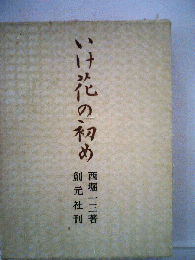 いけ花の初め
西堀一三著
創元社刊